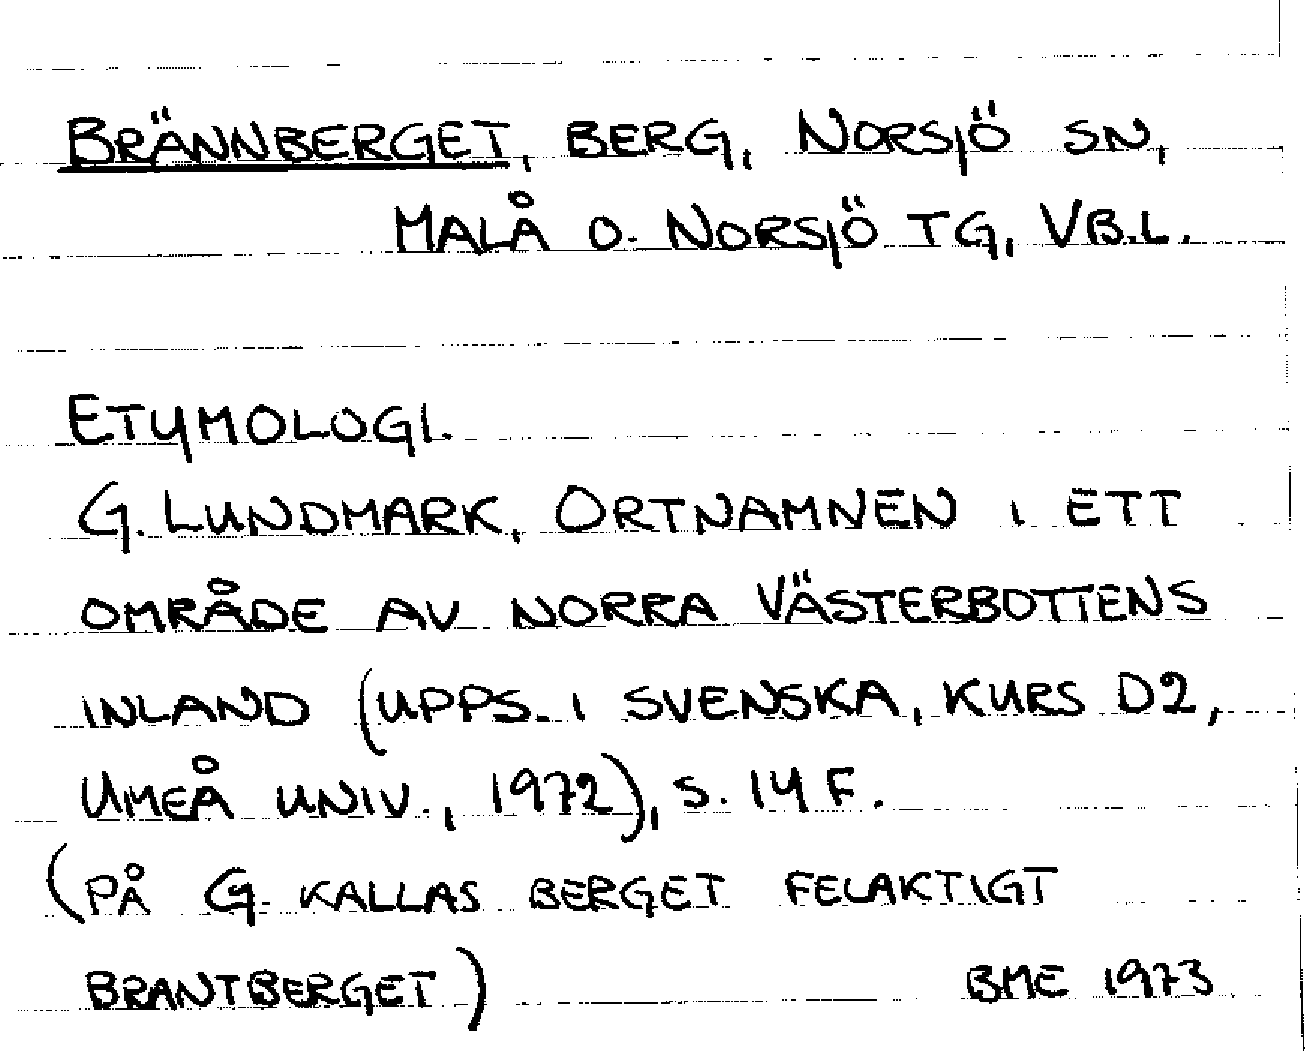 BRÄNNBERGET, BERG, NORSJÖ SN,
MALÅ O. NORSJÖ TG, VB.L.
ETYMOLOGI.
G. LUNDMARK, ORTNAMNEN I ETT
OMRÅDE AV NORRA VÄSTERBOTTENS
INLAND (UPPS. I SVENSKA, KURS D2,
UMEÅ UNIV., 1972), S. 14 F.
(PÅ G. KALLAS BERGET FELAKTIGT
BRANTBERGET) BME 1973